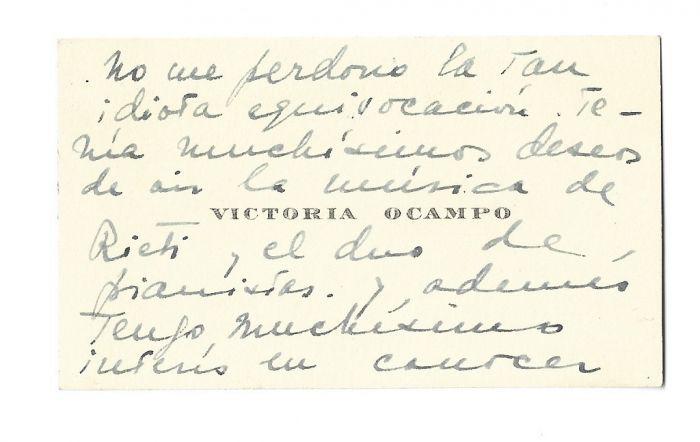 No me perdono la tan
idiota equivocación. Te-
nía muchísimos deseos
de oir la música de
VICTORIA OCAMPO
Rieti y el duo de
pianistas. Y además
tengo muchísimo
interés en conocer